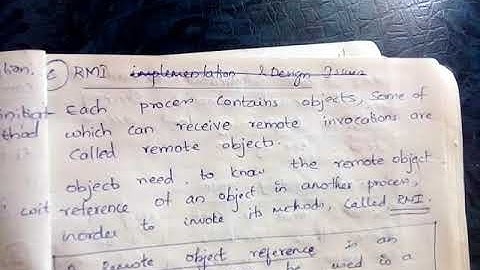 tion. c) RMI implementation & Design Issues
Each process contains objects, some of
which can receive remote invocations are
called remote objects.
object need to know the remote object
reference of an object in another process,
inorder to invoke its methods, called RMI.
A Remote object reference is an
be used to a